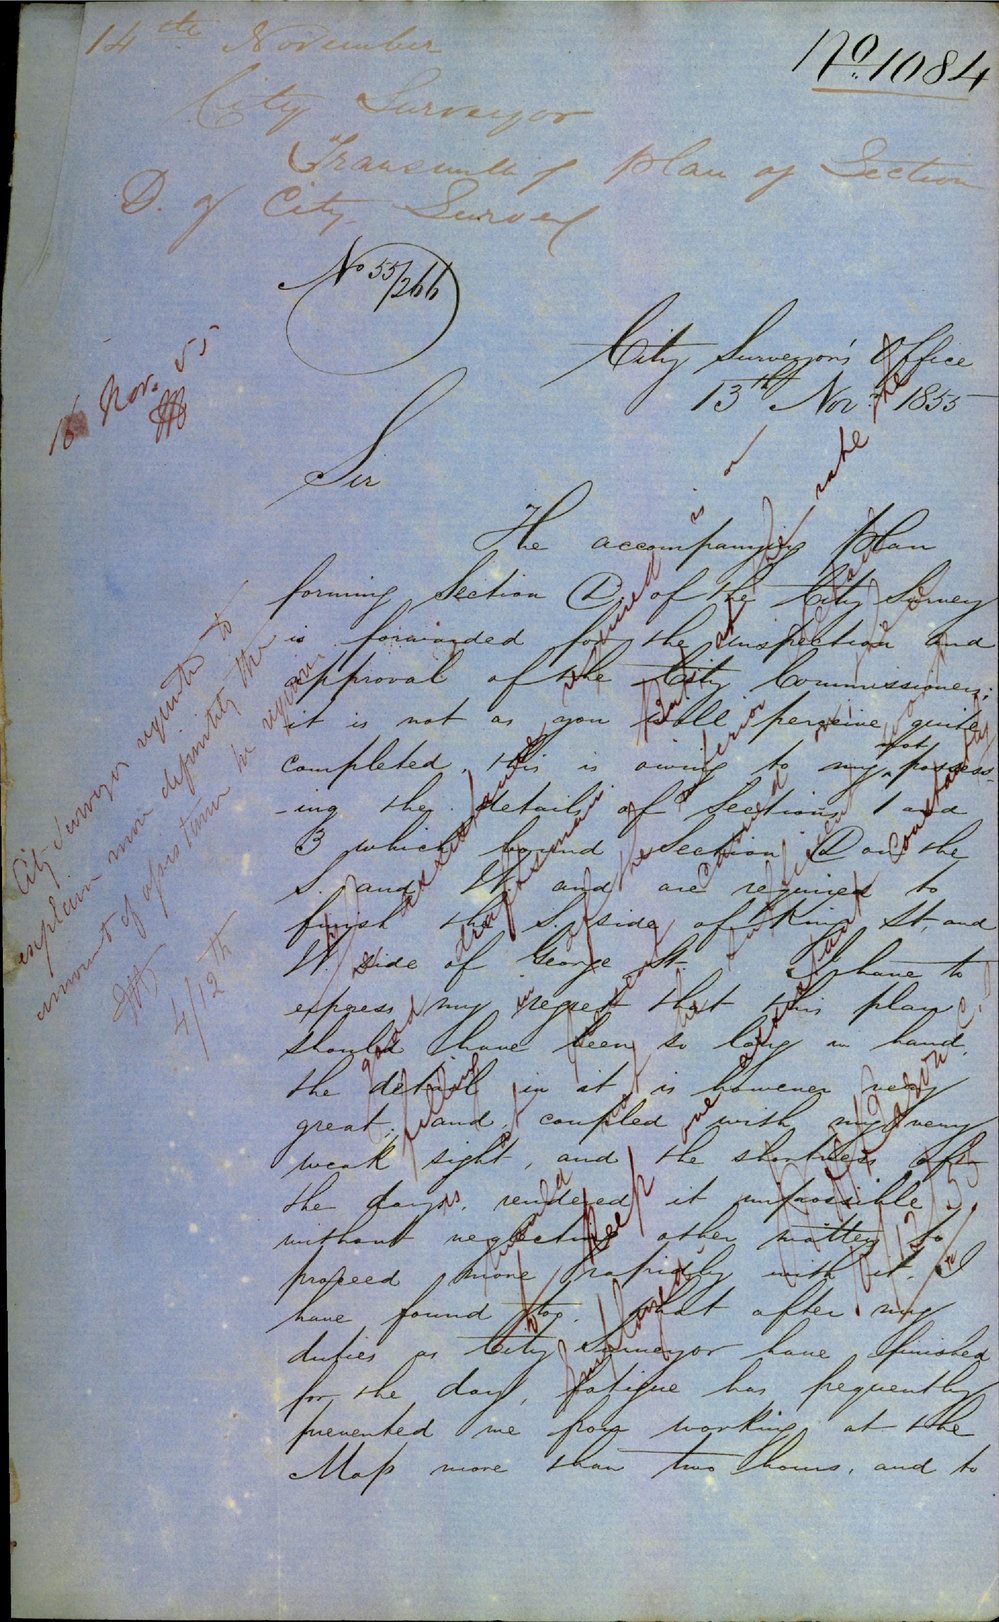 14th November
No. 1084
City Surveyor
Transmitting Plan of Section
D. of City Survey
No 55/266
City Surveyor's Office
13th Nov. 1855
16 Nov. 55
Sir
The accompanying Plan
forming Section D. of the City Survey
is forwarded for the inspection and
approval of the City Commissioners;
it is not as you will perceive, quite
completed, this is owing to my not possess-
-ing the details of Sections 1 and
3 which bound Section D on the
S. and W. and are required to
finish the S. side of King St. and
W. side of George St. I have to
express my regret that this plan
should have been so long in hand,
the detail in it is however very
great, and coupled with my very
weak sight, and the shortness of
the days, rendered it impossible
without neglecting other matters to
proceed more rapidly with it. I
have found too, that after my
duties as City Surveyor have finished
for the day, fatigue has frequently
prevented me from working at the
Map more than two hours, and to
City Surveyor requested to
explain more definitely the
amount of assistance he requires
4/12th
is required
draftsman
But at the rate the
not be sufficient
to keep one assistant constantly
employed